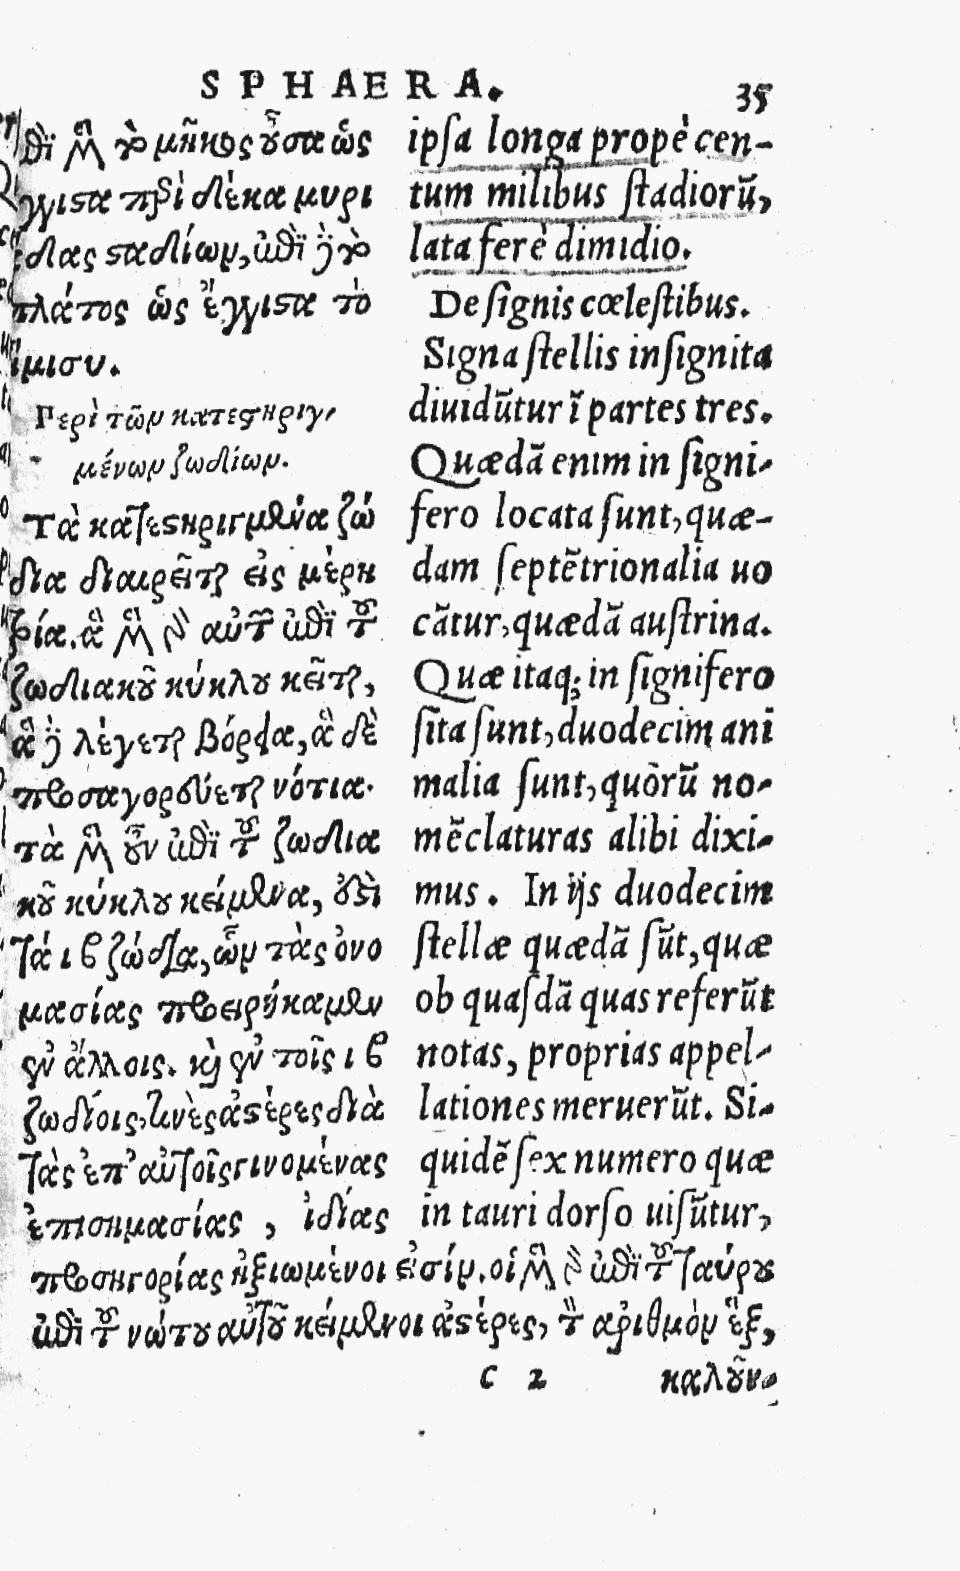 SPHAERA. 35
ἐπὶ μὲν τὸ μῆκος οὖσα ὡς
ἔγγιστα περὶ δέκα μυρι
άδας σταδίων, ἐπὶ δὲ τὸ
πλάτος ὡς ἔγγιστα τὸ
ἥμισυ.
Περὶ τῶν κατεστηριγ-
μένων ζωδίων.
Τὰ κατεστηριγμένα ζώ
δια διαιρεῖται εἰς μέρη
τρία. ἃ μὲν γὰρ αὐτῶν ἐπὶ τοῦ
ζωδιακοῦ κύκλου κεῖται,
ἃ δὲ λέγεται βόρεια, ἃ δὲ
προσαγορεύεται νότια.
τὰ μὲν οὖν ἐπὶ τοῦ ζωδια
κοῦ κύκλου κείμενα, ἐστὶ
τά ιβ ζώδια, ὧν τὰς ὀνο
μασίας προειρήκαμεν
ἐν ἄλλοις. καὶ ἐν τοῖς ιβ
ζωδίοις, τινὲς ἀστέρες διὰ
τὰς ἐπ' αὐτοῖς γινομένας
ἐπισημασίας, ἰδίας
ipsa longa propè cen-
tum milibus stadiorũ,
lata ferè dimidio.
De signis cœlestibus.
Signa stellis insignita
diuidũtur ĩ partes tres.
Quædã enim in signi-
fero locata sunt, quæ-
dam septẽtrionalia uo
cãtur, quædã austrina.
Quæ itaq; in signifero
sita sunt, duodecim ani
malia sunt, quòrũ no-
mẽclaturas alibi dixi-
mus. In ijs duodecim
stellæ quædã sũt, quæ
ob quasdã quas referũt
notas, proprias appel-
lationes meruerũt. Si-
quidẽ sex numero quæ
in tauri dorso uisũtur,
προσηγορίας ἠξιωμένοι εἰσίν. οἱ μὲν γὰρ ἐπὶ τοῦ ταύρου
ἐπὶ τοῦ νώτου αὐτοῦ κείμενοι ἀστέρες, τὸν ἀριθμὸν ἓξ,
c 2 καλοῦν-